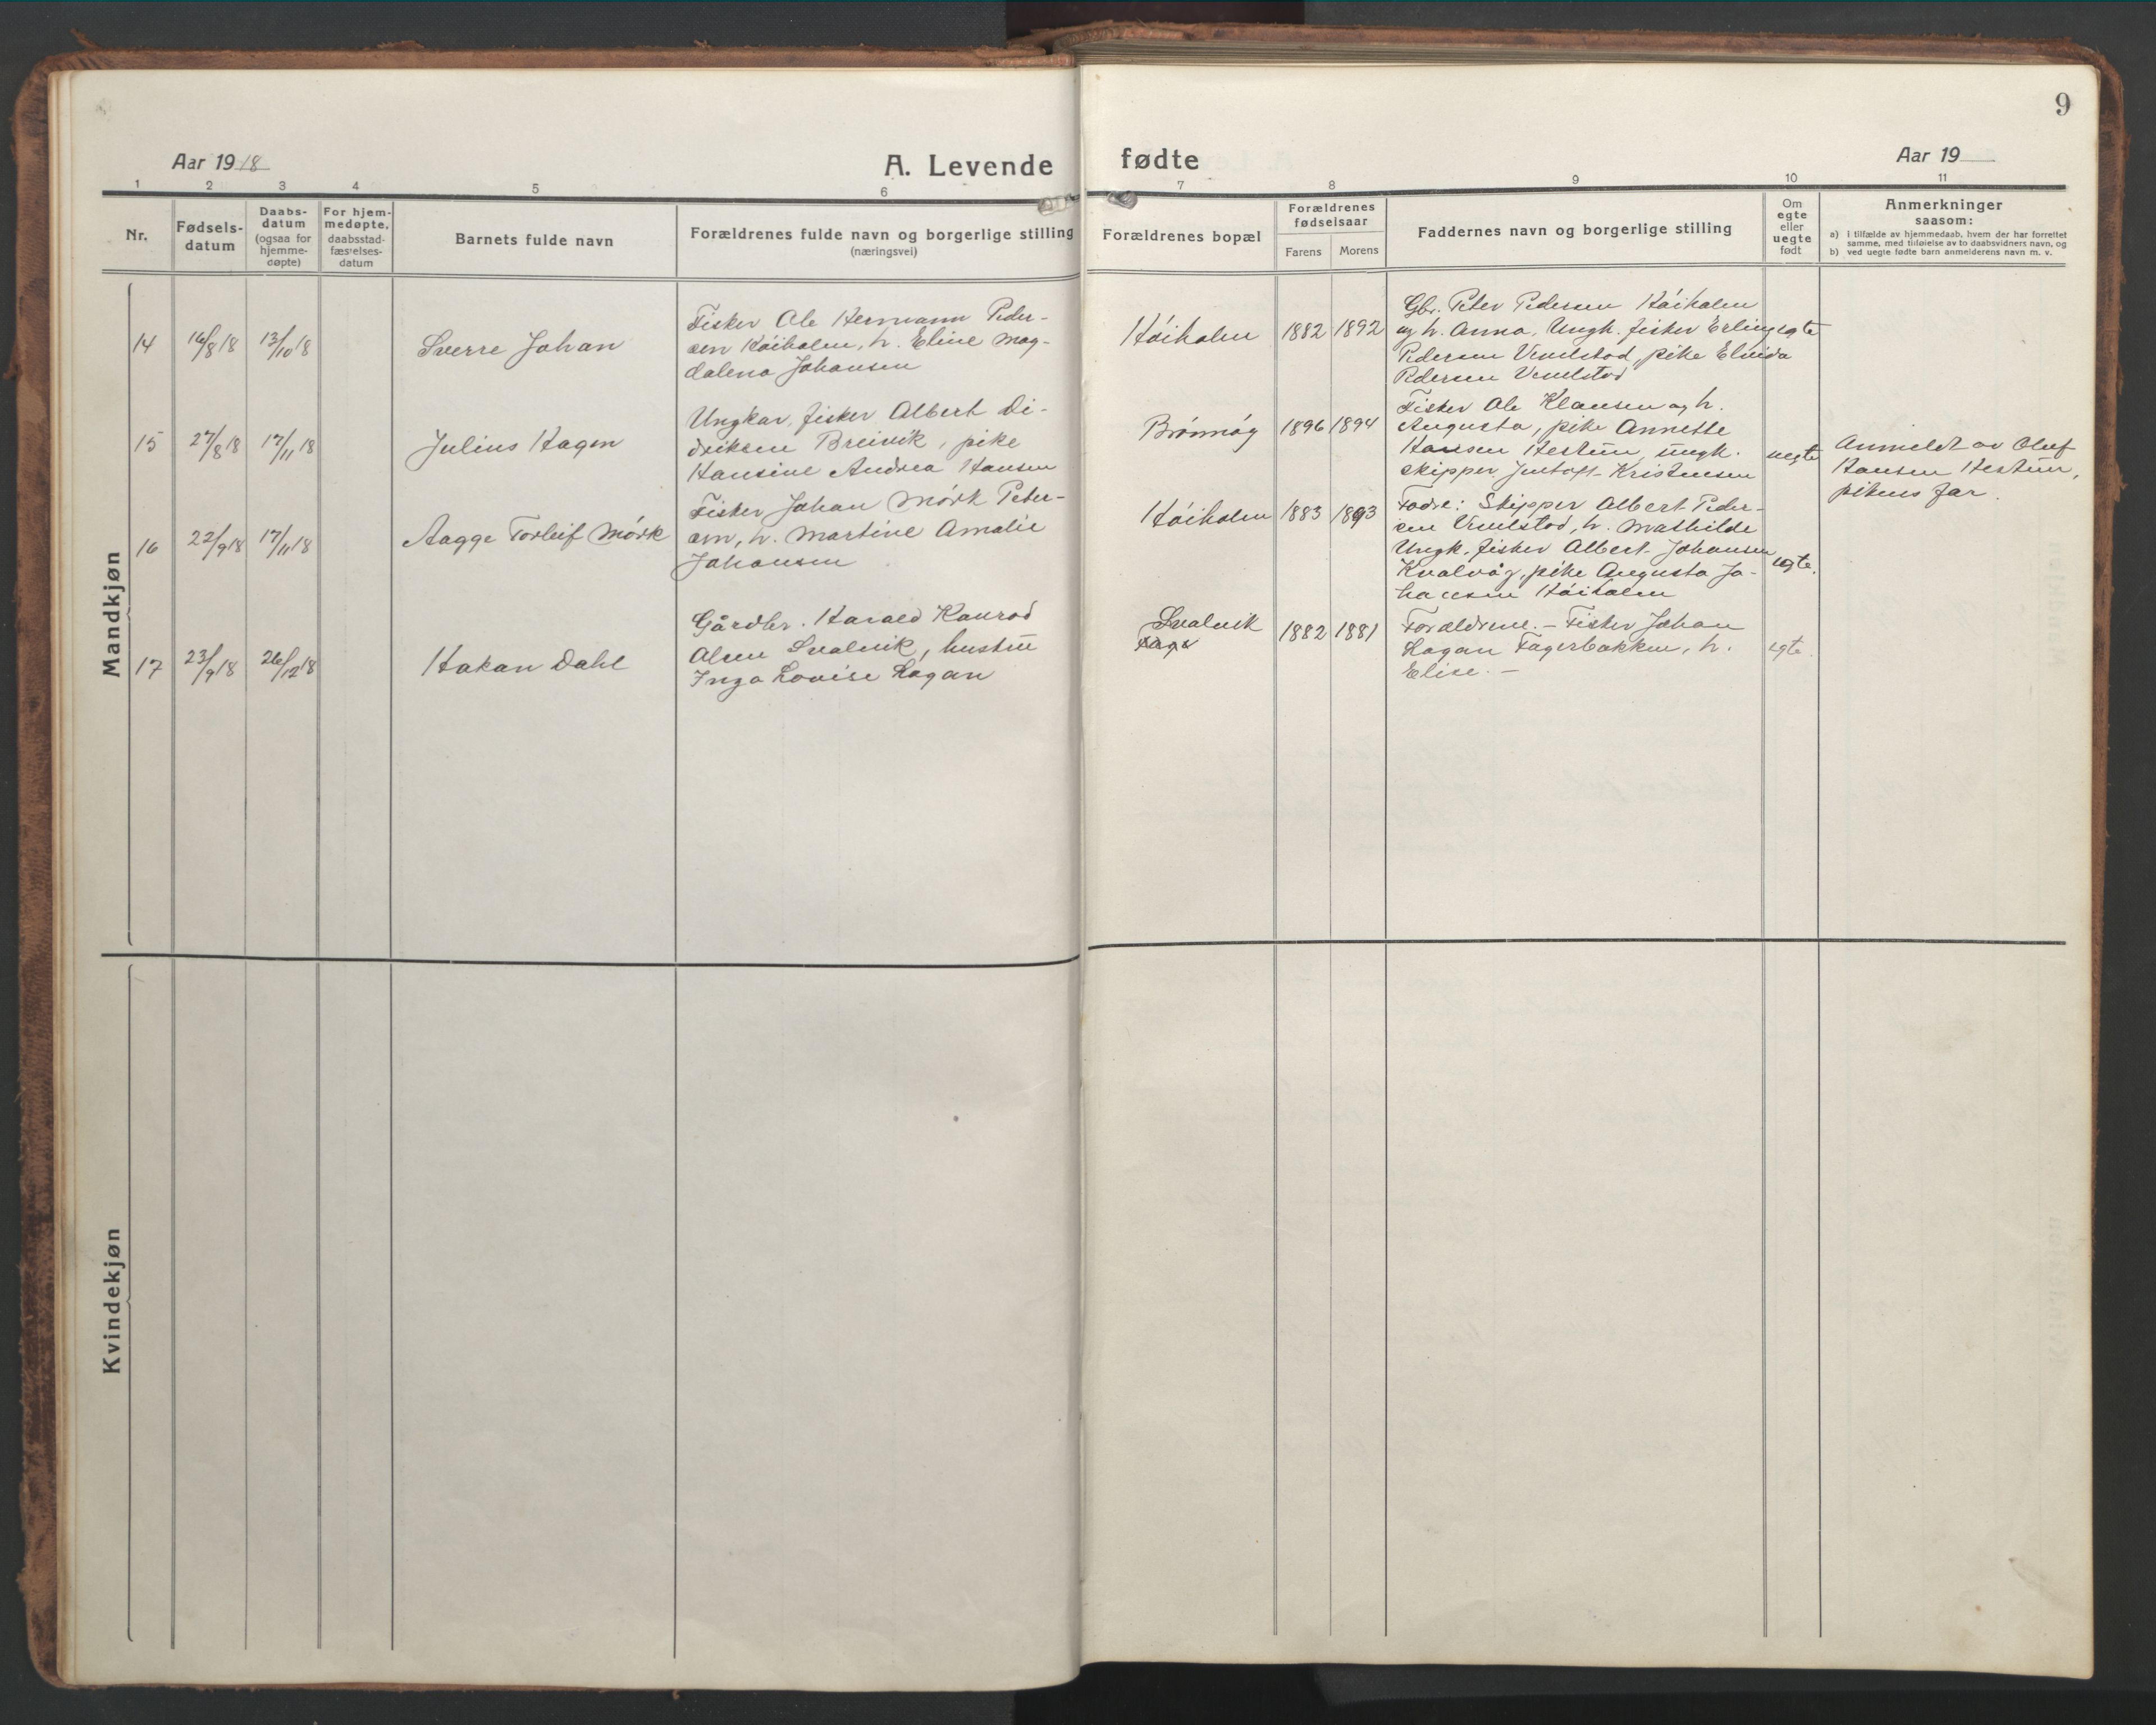 9
Aar 1918
A. Levende fødte
Aar 19
1 2 3 4 5 6 7 8 9 10 11
Nr.
Fødsels-
datum
Daabs-
datum
(ogsaa for
hjemme-
døpte)
For hjem-
medøpte,
daabsstad-
fæstelses-
datum
Barnets fulde navn
Forældrenes fulde navn og borgerlige stilling
(næringsvei)
Forældrenes bopæl
Forældrenes
fødselsaar
Farens Morens
Faddernes navn og borgerlige stilling
Om
egte
eller
uegte
født
Anmerkninger
saasom:
a) i tilfælde av hjemmedaab, hvem der har forrettet
samme, med tilføielse av to daabsvidners navn, og
b) ved uegte fødte barn anmelderens navn m. v.
Mandkjøn
14
16/8 18
13/10 18
Sverre Johan
Fisker Ole Hermann Peder-
sen Høiholm, h. Eline Mag-
dalena Johansen
Høiholm
1882 1892
Gbr. Peter Pedersen Høiholm
og h. Anna, Ungk. fisker Erling
Pedersen Vennlstad, pike Elvida
Pedersen Vennlstad
egte
15
27/8 18
17/11 18
Julius Hagen
Ungkar, fisker Albert Di-
driksen Breivik, pike
Hansine Andrea Hansen
Brønnøy
1896 1894
Fisker Ole Klausen og h.
Augusta, pike Annette
Hansen Hestun, ungk.
skipper Kristensen
uegte
Anmeldt av Oluf
Hansen Hestun,
pikens far.
16
22/9 18
17/11 18
Aagge Torleif Mørk
Fisker Johan Mørk Peter-
sen, h. Martine Amalie
Johansen
Høiholm
1883 1893
Fadre: Skipper Albert Peder-
sen Vennlstad, h. Mathilde
Ungk. fisker Albert Johansen
Kvalvåg, pike Augusta Jo-
hansen Høiholm
egte.
17
23/9 18
26/12 18
Hakan Dahl
Gårdbr. Harald Konrad
Olsen Svalvik, hustru
Inga Lovise Lagan
Svalvik
1882 1881
Forældrene. – Fisker Johan
Lagan Fagerbakken, h.
Elise. –
egte.
Kvindekjøn